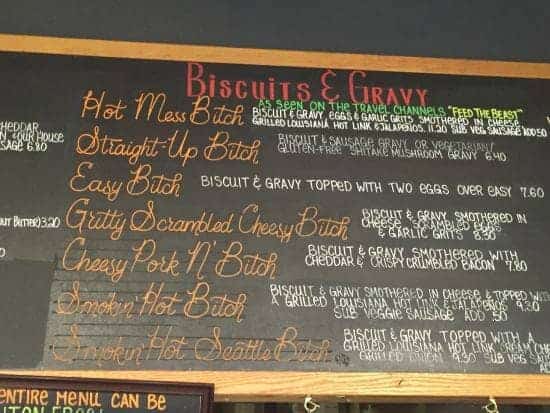 BISCUITS & GRAVY
Hot Mess Bitch
AS SEEN ON THE TRAVEL CHANNELS "FEED THE BEAST"
BISCUIT & GRAVY, EGGS & GARLIC GRITS SMOTHERED IN CHEESE
GRILLED LOUISIANA HOT LINK & JALAPEÑOS 11.20 SUB VEG SAUSAGE ADD 50
Straight-Up Bitch
BISCUIT & SAUSAGE GRAVY OR VEGETARIAN/
GLUTEN-FREE SHITAKE MUSHROOM GRAVY 6.40
Easy Bitch
BISCUIT & GRAVY TOPPED WITH TWO EGGS OVER EASY 7.60
Gritty Scrambled Cheesy Bitch
BISCUIT & GRAVY SMOTHERED IN
CHEESE & SCRAMBLED EGGS
& GARLIC GRITS 8.30
Cheesy Pork N' Bitch
BISCUIT & GRAVY SMOTHERED WITH
CHEDDAR & CRISPY CRUMBLED BACON 7.80
Smokin' Hot Bitch
BISCUIT & GRAVY SMOTHERED IN CHEESE & TOPPED WITH
A GRILLED LOUISIANA HOT LINK & JALAPEÑOS 9.30
SUB VEGGIE SAUSAGE ADD 50
Smokin' Hot Seattle Bitch
BISCUIT & GRAVY TOPPED WITH A
GRILLED LOUISIANA HOT LINK, CREAM CHE
GRILLED ONION 9.30 SUB VEG SAUS
CHEDDAR
N & OUR HOUSE
SAGE 6.80
UT BUTTER) 3.20
ENTIRE MENU CAN BE